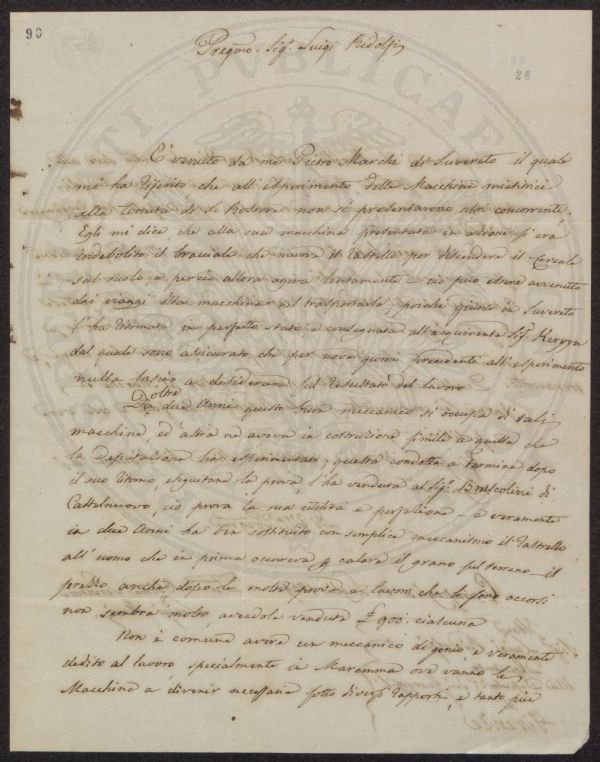 90
Pregmo. Sig. Luigi Ridolfi
28
E' venuto da me Pietro Marchi di Suvereto il quale
mi ha riferito che all'esperimento delle Macchine mietitrici
alla tenuta di S. Rossore non si presentarono altri concorrenti.
Egli mi dice, che alla sua macchina presentata in azione si era
indebolito il bracciale che muove il rastello per distendere il Cereale
sul suolo e perciò allora agiva lentamente - ciò può essere avvenuto
dai viaggi macchina nel trasportarla, poiché giunto in Suvereto
l'ha ritornata in perfetto stato e consegnata all'acquirente Sig.
dal quale sono assicurato che per nove giorni precedenti all'esperimento
nulla lasciò a desiderare sul resultato del lavoro
oltre
Da due Anni questo bravo meccanico si occupa di tali
macchine, ed altra ne aveva in costruzione simile a quella che
la Deputazione ha esperimentato, questa condotta a termine dopo
il suo ritorno, eseguitane la prova, l'ha venduta al Sig. Bruscolini di
Castelnuovo, ciò prova la sua utilità e perfezione, e veramente
in due Anni ha ben sostituito con semplice meccanismo il rastrello
all'uomo che in prima occorreva p calare il grano sul terreno - il
prezzo anche dopo le molte prove e lavori che le sono occorsi
non sembra molto avendole vendute £ 900: cialcuna
Non è comune avere un meccanico di genio e veramente
dedito al lavoro specialmente in Maremma ove vanno le
Macchine a divenir necessarie sotto diversi rapporti, e tanto più